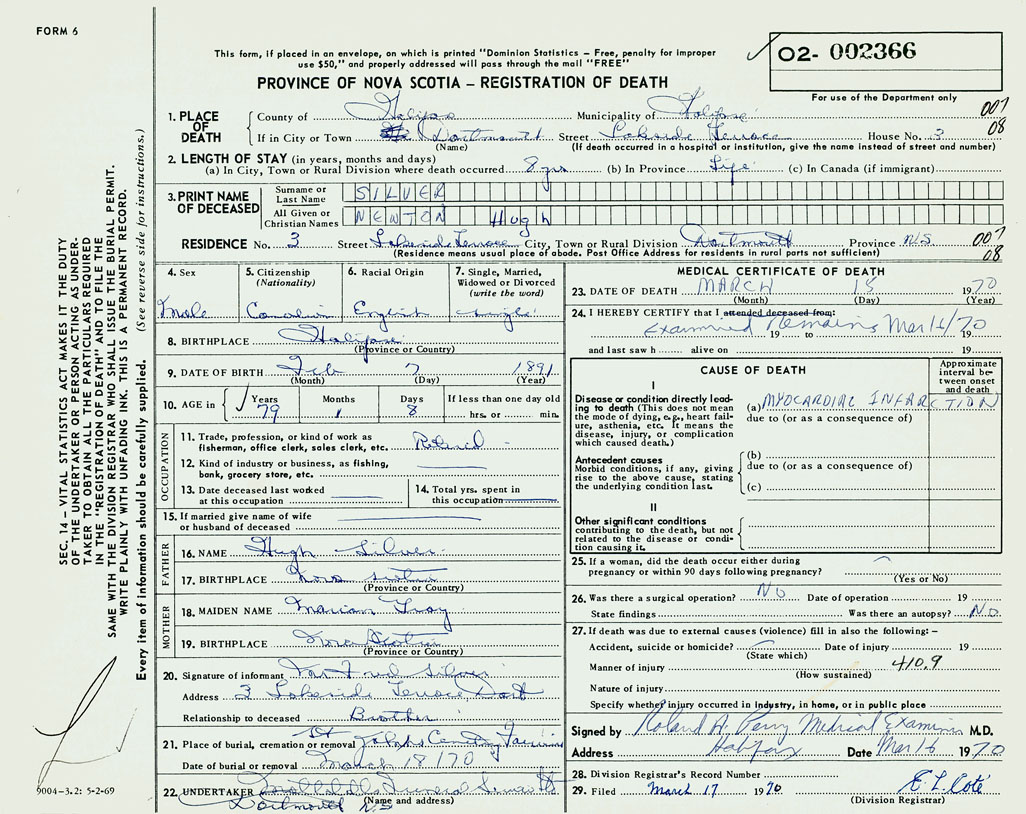 FORM 6
This form, if placed in an envelope, on which is printed "Dominion Statistics – Free, penalty for improper
use $50," and properly addressed will pass through the mail "FREE"
PROVINCE OF NOVA SCOTIA – REGISTRATION OF DEATH
02- 002366
For use of the Department only
SEC. 14 – VITAL STATISTICS ACT MAKES IT THE DUTY
OF THE UNDERTAKER OR PERSON ACTING AS UNDER-
TAKER TO OBTAIN ALL THE PARTICULARS REQUIRED
IN THE "REGISTRATION OF DEATH" AND TO FILE THE
SAME WITH THE DIVISION REGISTRAR WHO SHALL ISSUE THE BURIAL PERMIT.
WRITE PLAINLY WITH UNFADING INK. THIS IS A PERMANENT RECORD.
Every item of information should be carefully supplied. (See reverse side for instructions.)
9004-3.2: 5-2-69
1. PLACE OF DEATH
County of Halifax Municipality of Halifax 007
If in City or Town Dartmouth Street Lakeside Terrace House No. 3 08
(Name) (If death occurred in a hospital or institution, give the name instead of street and number)
2. LENGTH OF STAY (in years, months and days)
(a) In City, Town or Rural Division where death occurred 8 yrs (b) In Province Life (c) In Canada (if immigrant)
3. PRINT NAME OF DECEASED
Surname or Last Name SILVER
All Given or Christian Names NEWTON Hugh
RESIDENCE No. 3 Street Lakeside Terrace City, Town or Rural Division Dartmouth Province N.S. 007
(Residence means usual place of abode. Post Office Address for residents in rural parts not sufficient) 08
4. Sex Male
5. Citizenship (Nationality) Canadian
6. Racial Origin English
7. Single, Married, Widowed or Divorced (write the word) single
8. BIRTHPLACE Halifax
(Province or Country)
9. DATE OF BIRTH Feb 7 1891
(Month) (Day) (Year)
10. AGE in Years 79 Months 1 Days 8 If less than one day old hrs. or min.
OCCUPATION
11. Trade, profession, or kind of work as
fisherman, office clerk, sales clerk, etc. Retired
12. Kind of industry or business, as fishing,
bank, grocery store, etc.
13. Date deceased last worked
at this occupation
14. Total yrs. spent in
this occupation
15. If married give name of wife
or husband of deceased
FATHER
16. NAME Hugh Silver
17. BIRTHPLACE Nova Scotia
(Province or Country)
MOTHER
18. MAIDEN NAME Marian
19. BIRTHPLACE Nova Scotia
(Province or Country)
20. Signature of informant Fred Silver
Address 3 Lakeside Terrace Dart
Relationship to deceased Brother
21. Place of burial, cremation or removal St
Date of burial or removal March 18/70
22. UNDERTAKER Funeral
(Name and address)
Dartmouth N.S
MEDICAL CERTIFICATE OF DEATH
23. DATE OF DEATH MARCH 15 1970
(Month) (Day) (Year)
24. I HEREBY CERTIFY that I attended deceased from:
Examined Remains Mar 16/70
19 to 19
and last saw h alive on 19
CAUSE OF DEATH
Approximate interval be-tween onset and death
I
Disease or condition directly lead-
ing to death (This does not mean
the mode of dying, e.g., heart fail-
ure, asthenia, etc. It means the
disease, injury, or complication
which caused death.)
(a) MYOCARDIAL INFARCTION
due to (or as a consequence of)
Antecedent causes
Morbid conditions, if any, giving
rise to the above cause, stating
the underlying condition last.
(b)
due to (or as a consequence of)
(c)
II
Other significant conditions
contributing to the death, but not
related to the disease or condi-
tion causing it.
25. If a woman, did the death occur either during
pregnancy or within 90 days following pregnancy?
(Yes or No)
26. Was there a surgical operation? NO Date of operation 19
State findings Was there an autopsy? NO
27. If death was due to external causes (violence) fill in also the following: –
Accident, suicide or homicide? Date of injury 19
(State which)
Manner of injury 410.9
(How sustained)
Nature of injury
Specify whether injury occurred in industry, in home, or in public place
Signed by Roland A. Perry Medical Examiner M.D.
Address Halifax Date Mar 16 1970
28. Division Registrar's Record Number
29. Filed March 17 1970 E L Coté
(Division Registrar)